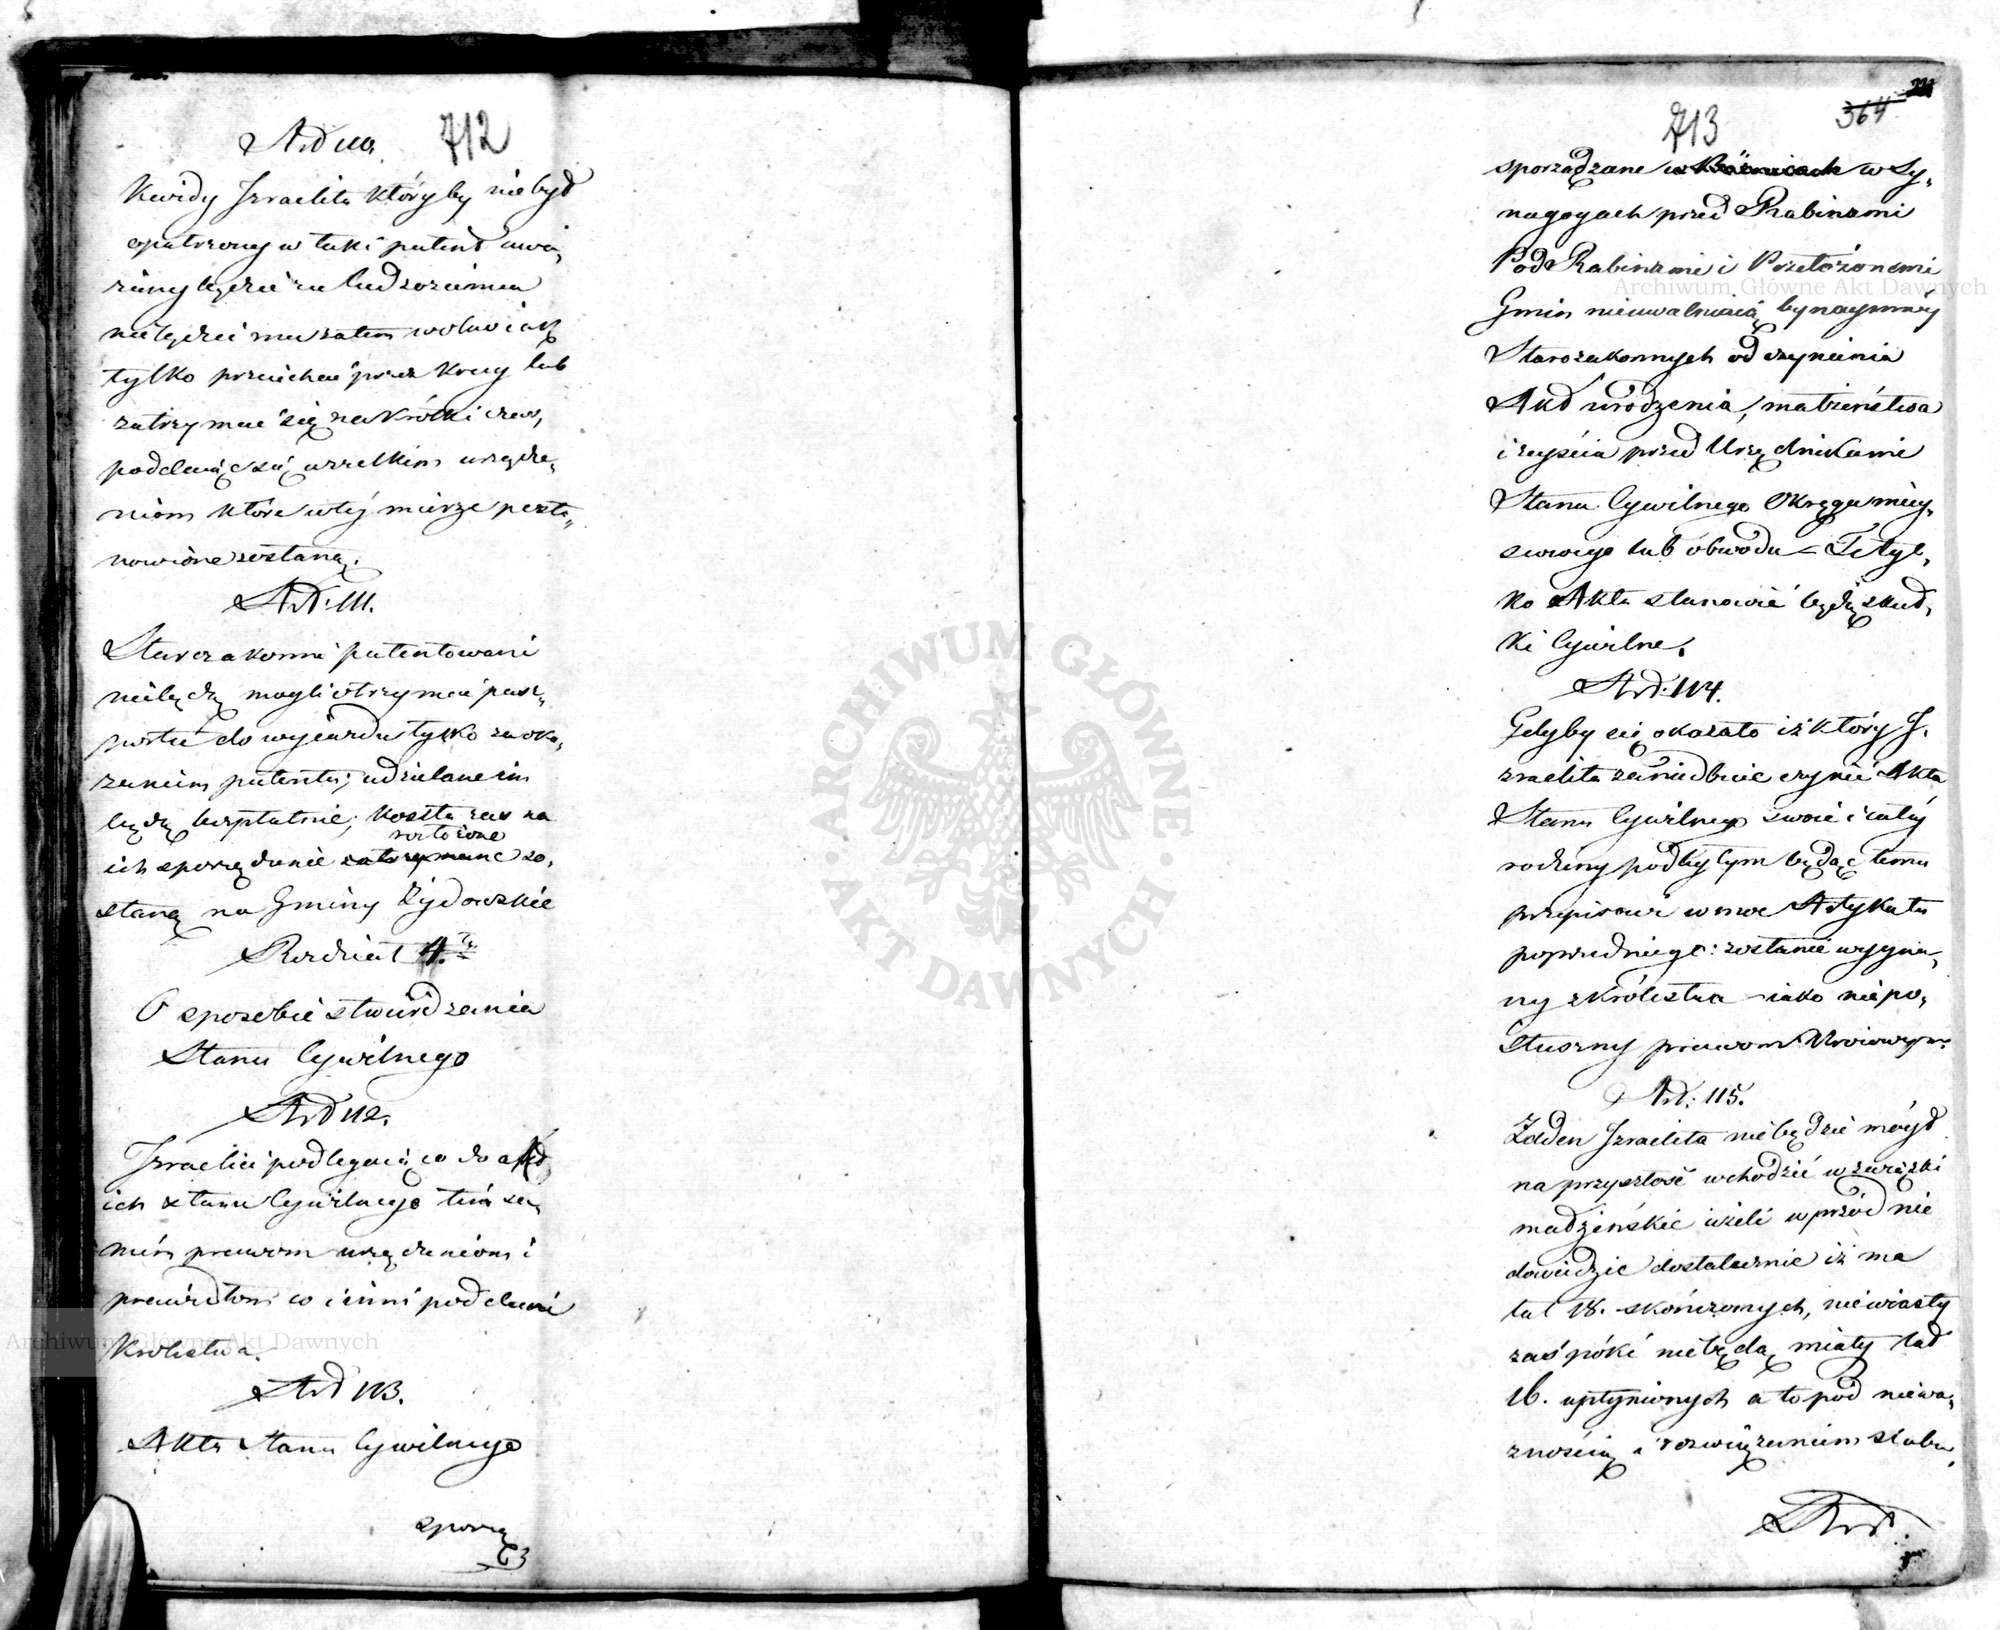 Art 110.
712
Każdy Izraelita któryby nie był
opatrzony w taki patent uwa„
żany będzie za Cudzoziemca
nie będzie mu zatem wolno iak
tylko przeiechać przez kray lub
zatrzymać się na krótki czas,
podlegaiąc wszelkim urządze„
niom które w téy mierze posta„
nowione zostaną.
Art: 111.
Starozakonni patentowani
nie będą mogli otrzymać pasz„
portu do wyiazdu tylko za oka„
zaniem patentu; udzielane im
będą bezpłatnie; koszta zaś na
rozłożone
ich sporządzenie zatrzymane zo„
staną na Gminy Żydowskie
Rozdział 4.ty
O sposobie stwierdzenia
Stanu Cywilnego
Art 112.
Izraelici podlegaią co do akt
ich stanu Cywilnego tym sa„
mym prawom urządzeniom i
prawidłom co i inni poddani
Królestwa.
Art 113.
Akta Stanu Cywilnego
sporzą
dz
713
364
sporządzane w Bóżnicach w Sy„
nagogach przed Rabinami
Pod Rabinami i Przełożonemi
Gmin nieuwalniaią bynaymniéy
Starozakonnych od czynienia
Akt urodzenia, małżeństwa
i zeyścia przed Urzędnikami
Stanu Cywilnego Okręgu miey„
scowego lub obwodu – Te tyl„
ko Akta stanowić będą skut„
ki Cywilne.
Art: 114.
Gdyby się okazało iż który I„
zraelita zaniedbuie czynić Akta
Stanu Cywilnego swoie i całéy
rodziny podległym będąc temu
przepisowi w moc Artykułu
poprzedniego: zostanie wygna„
ny z Królestwa iako niepo„
słuszny prawom Kraiowym.
Art: 115.
Żaden Izraelita nie będzie mógł
na przyszłość wchodzić w związki
małżeńskie ieżeli wprzód nie
dowiedzie dostatecznie iż ma
lat 18. skończonych, niewiasty
zaś póki nie będą miały lat
16. upłynionych a to pod niewa„
żnością i rozwiązaniem ślubu.
Art.